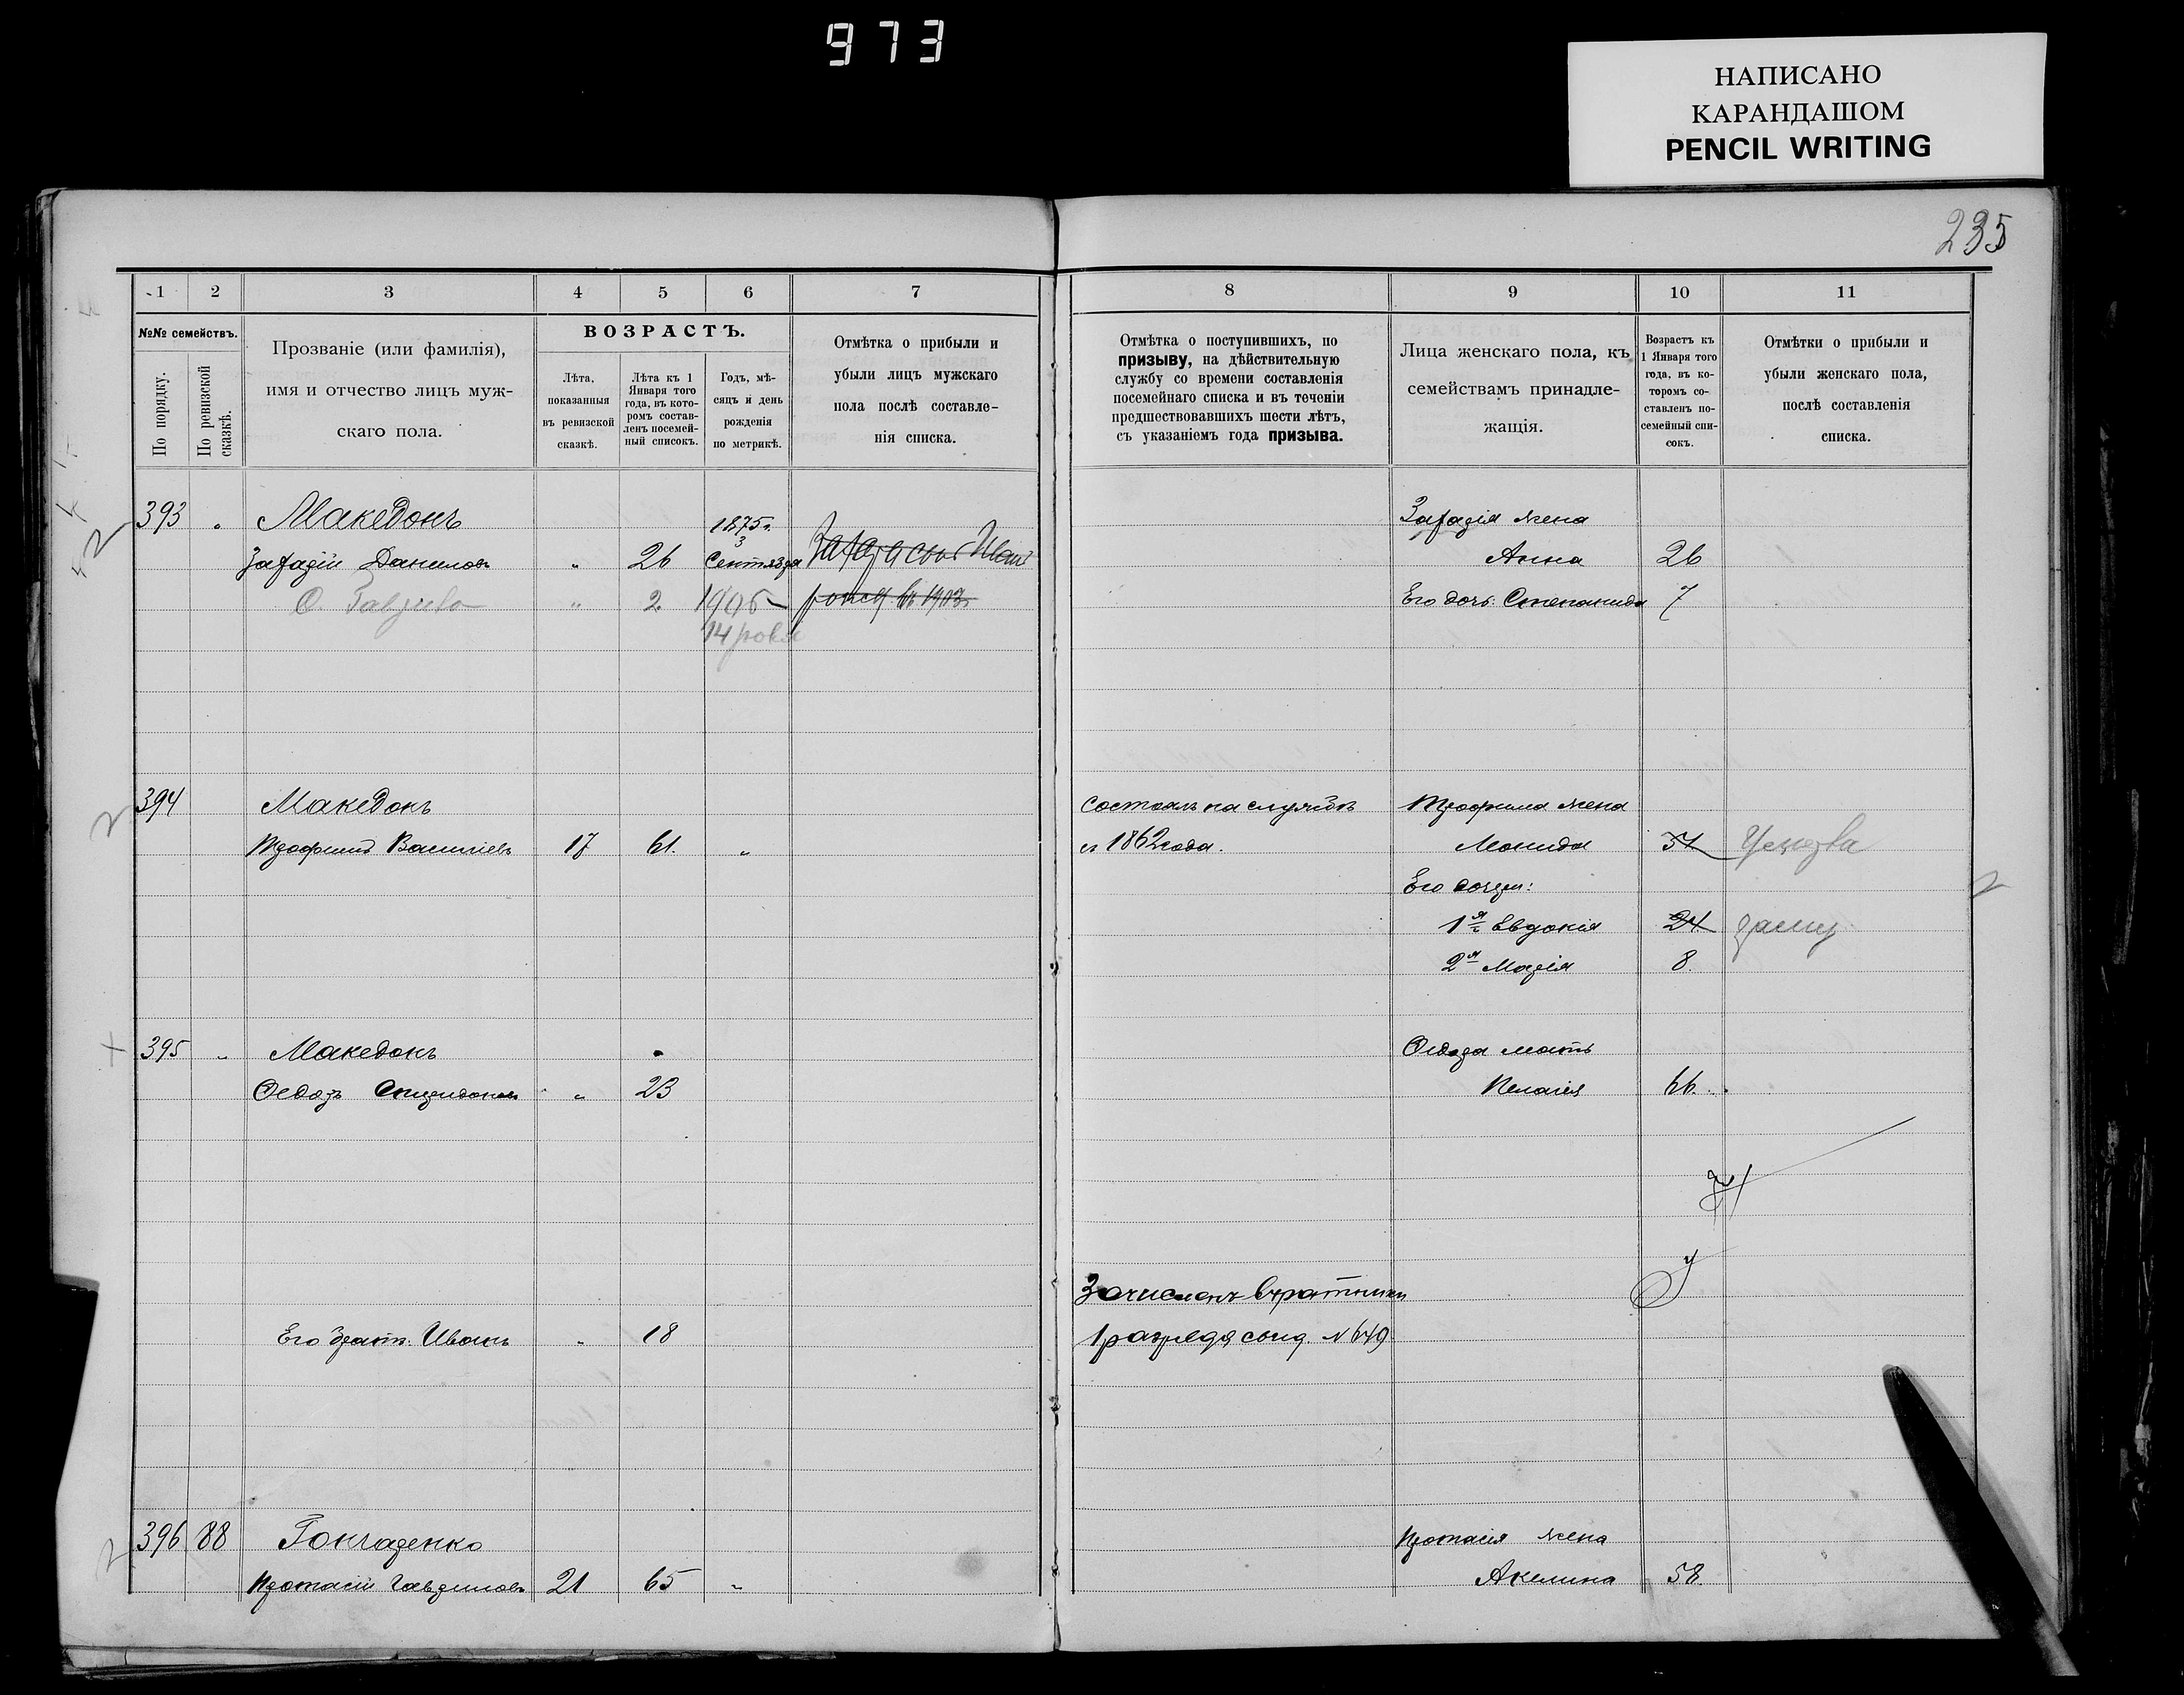 973
НАПИСАНО
КАРАНДАШОМ
PENCIL WRITING
235
1 2 3 4 5 6 7
№№ семействъ.
По порядку.
По ревизской сказкѣ.
Прозваніе (или фамилія),
имя и отчество лицъ муж-
скаго пола.
ВОЗРАСТЪ.
Лѣта,
показанныя
въ ревизской
сказкѣ.
Лѣта къ 1
Января того
года, въ кото-
ромъ состав-
ленъ посемей-
ный списокъ.
Годъ, мѣ-
сяцъ и день
рожденія
по метрикѣ.
Отмѣтка о прибыли и
убыли лицъ мужскаго
пола послѣ составле-
нія списка.
393 " Македонъ 1875 г.
3
Данилов " 26 Сентября
" 2 1906
14
394 Македонъ
Трофимъ Василіевъ 17 61. "
395 " Македонъ
Федоръ Спиридоновъ " 23
Его братъ: Иванъ " 18
396 88 Гончаренко
Протасій Гавриловъ 21 65 "
8 9 10 11
Отмѣтка о поступившихъ, по
призыву, на дѣйствительную
службу со времени составленія
посемейнаго списка и въ теченіи
предшествовавшихъ шести лѣтъ,
съ указаніемъ года призыва.
Лица женскаго пола, къ
семействамъ принадле-
жащія.
Возрастъ къ
1 Января того
года, въ ко-
торомъ со-
ставленъ по-
семейный спи-
сокъ.
Отмѣтки о прибыли и
убыли женскаго пола,
послѣ составленія
списка.
жена
Анна 26
Его дочь: Степанида 7
состоялъ на службѣ Трофима жена
с 1862 года. 51
Его дочери:
1я Евдокія 24
2я Марія 8.
Федора мать
Пелагія 66.
Зачисленъ в ратники
1 разряда № 649
Протасія жена
Акелина 58.